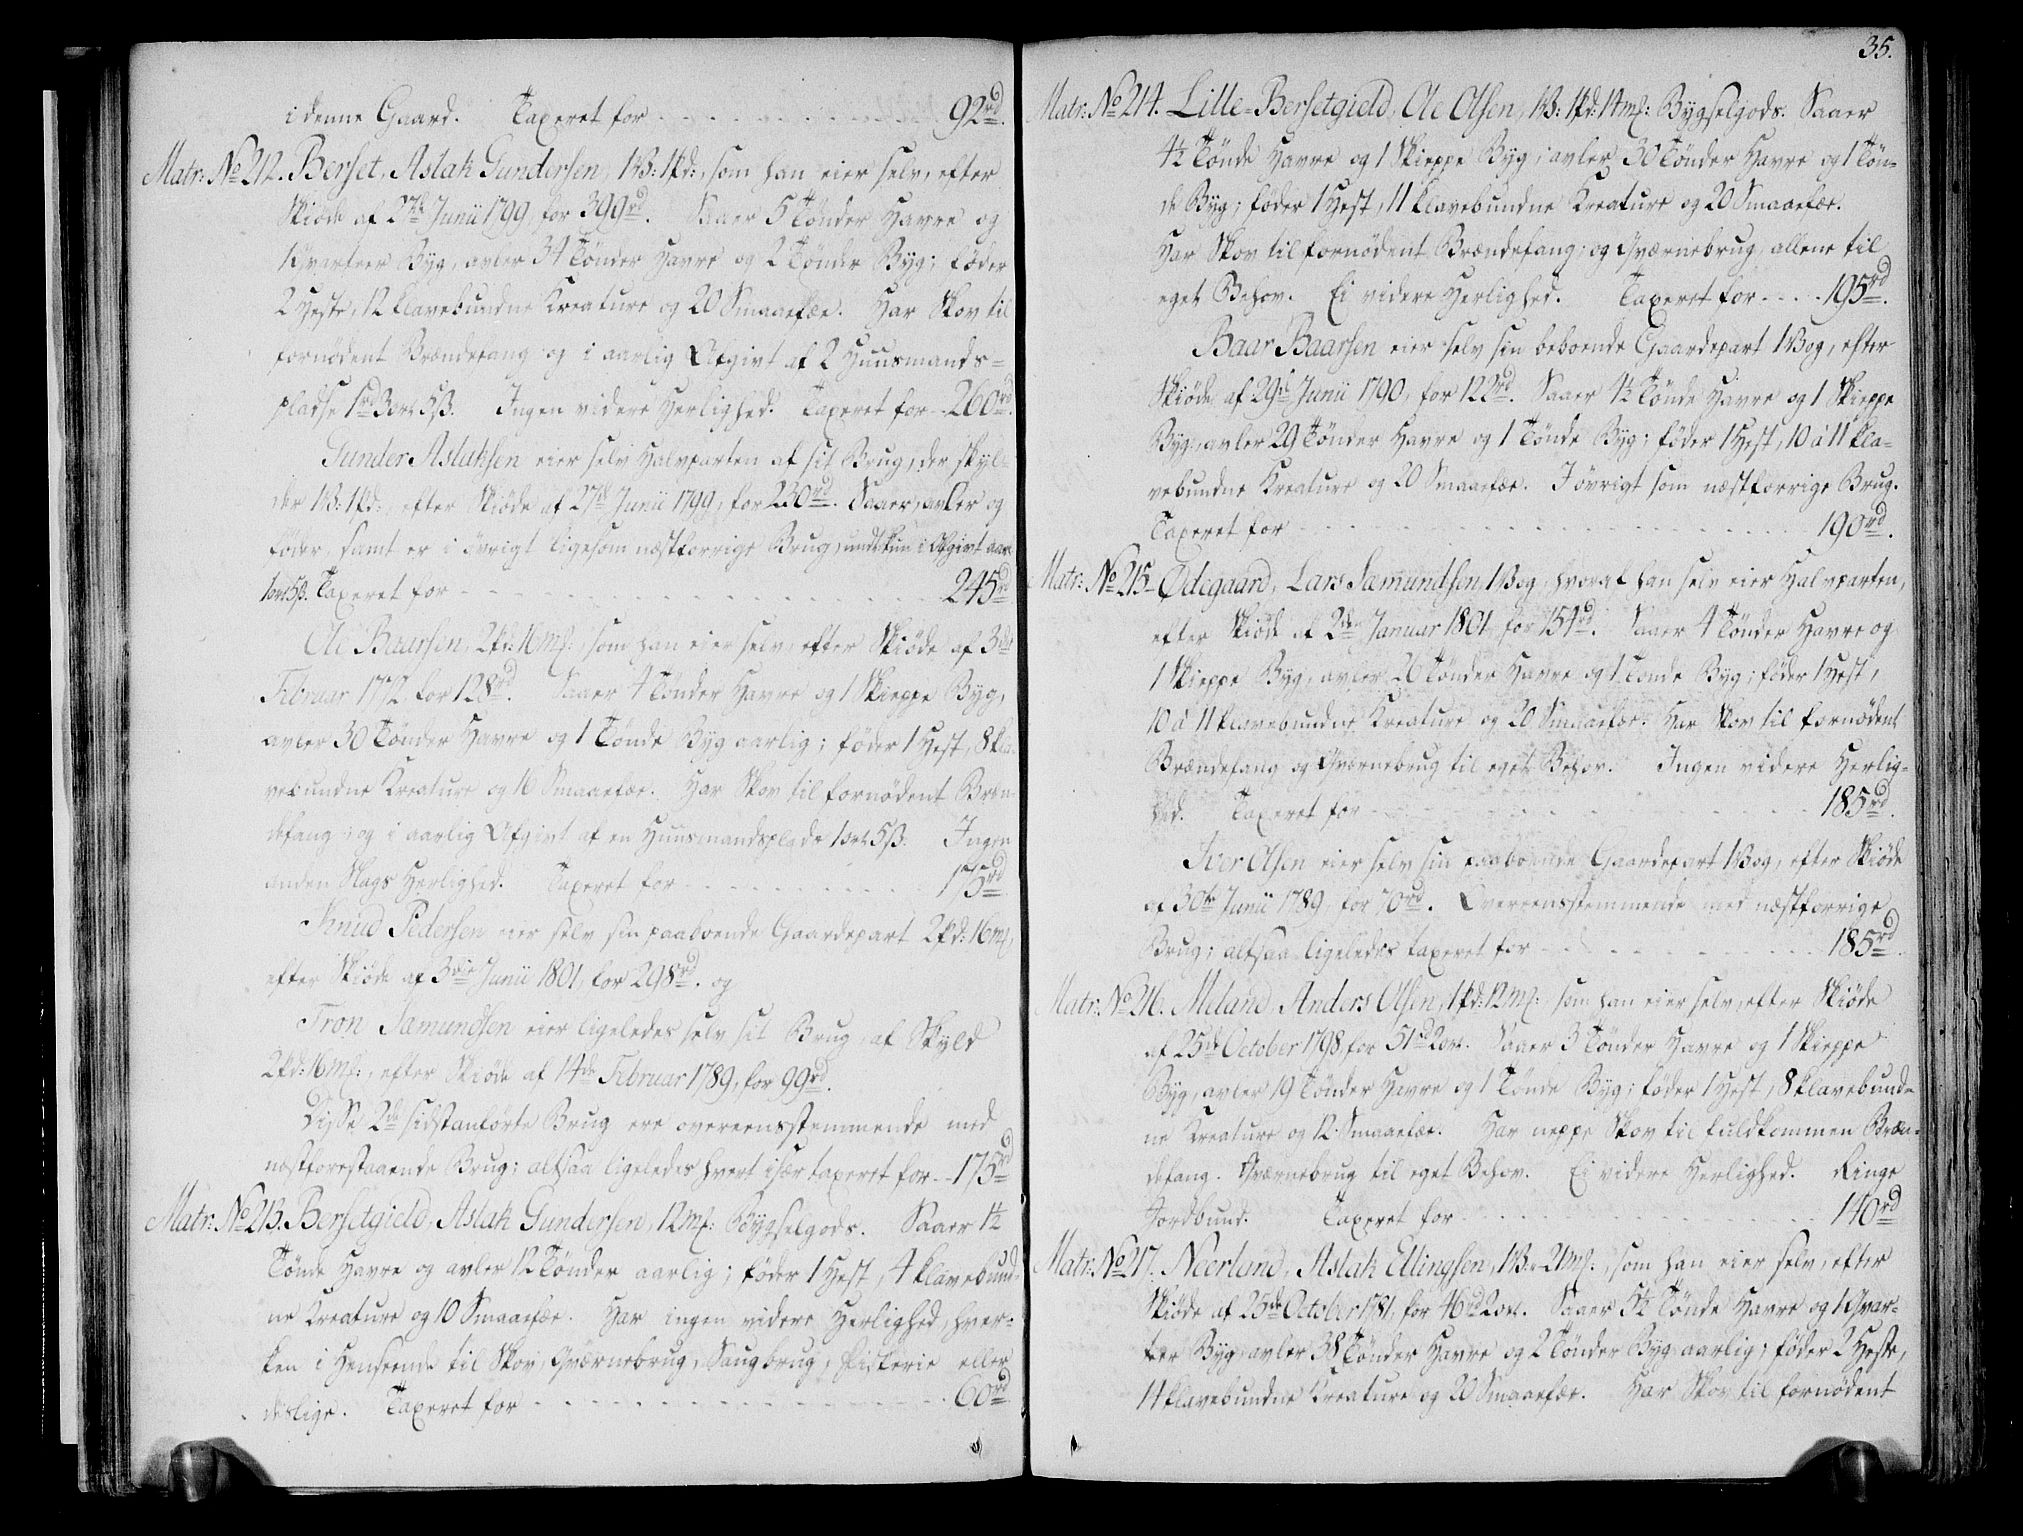 i denne Gaard. Taxeret for - - - - - 92rd.
Matr: No 212. Berset, Aslak Gundersen, 1B: 1pd:, som han eier selv, efter
Skiøde af 27de Junii 1799, for 399rd. Saaer 5 Tønder Havre og
1 Qvarteer Byg, avler 34 Tønder Havre og 2 Tønder Byg; føder
2 Heste, 12 klavebundne Kreature og 20 Smaaefæe. Har Skov til
fornødent Brændefang og i aarlig Afgivt af 2 Huusmands-
pladse 1rd 3ort 5ß. Ingen videre Herlighed. Taxeret for - 260rd.
Gunder Aslaksen eier selv Halvparten af sit Brug, der skyl-
der 1B: 1pd:, efter Skiøde af 27de Junii 1799, for 230rd. Saaer, avler og
føder, samt er i övrigt ligesom næstforrige Brug, undt: kun i Afgivt aarl:
1ort 5ß. Taxeret for - - - - - 245rd
Ole Baarsen, 2pd: 16mk:, som han eier selv, efter Skiøde af 3die
Februar 1772, for 128rd. Saaer 4 Tønder Havre og 1 Skieppe Byg,
avler 30 Tønder Havre og 1 Tønde Byg aarlig; føder 1 Hest, 8 kla-
vebundne Kreature og 16 Smaaefæe. Har Skov til fornødent Bræn-
defang, og i aarlig Afgivt af en Huusmandsplads 1ort 5ß. Ingen
anden Slags Herlighed. Taxeret for - - - - - 175rd
Knud Pedersen eier selv sin paaboende Gaardepart 2pd: 16mk,
efter Skiøde af 3die Junii 1801, for 298rd. og
Tron Sæmundsen eier ligeledes selv sit Brug, af Skyld
2pd: 16mk:, efter Skiøde af 14de Februar 1789, for 99rd.
Disse 2de sidstanførte Brug ere overeensstemmende med
næstforestaaende Brug; altsaa ligeledes hvert især taxeret for - 175rd
Matr: No 213. Bersetgield, Aslak Gundersen, 12mk: Bygselgods. Saaer 1½
Tønde Havre og avler 12 Tønder aarlig; føder 1 Hest, 4 klavebund-
ne Kreature og 10 Smaaefæe. Har ingen videre Herlighed, hver-
ken i Henseende til Skov, Qværnebrug, Saugbrug, Fiskerie eller
deslige. Taxeret for - - - - - 60rd
35.
Matr: No 214. Lille-Bersetgield, Ole Olsen, 1B: 1pd: 14mk: Bygselgods. Saaer
4½ Tønde Havre og 1 Skieppe Byg; avler 30 Tønder Havre og 1 Tøn-
de Byg; føder 1 Hest, 11 klavebundne Kreature og 20 Smaaefæe.
Har Skov til fornødent Brændefang, og Qværnebrug, allene til
eget Behov. Ei videre Herlighed. Taxeret for - - - 195rd.
Baar Baarsen eier selv sin beboende Gaardepart 1 Bog, efter
Skiøde af 29de Junii 1790, for 122rd. Saaer 4½ Tønde Havre og 1 Skieppe
Byg, avler 29 Tønder Havre og 1 Tønde Byg; føder 1 Hest, 10 à 11 kla-
vebundne Kreature og 20 Smaaefæe. I övrigt som næstforrige Brug.
Taxeret for - - - - - 190rd.
Matr: No 215. Ødegaard, Lars Sæmundsen, 1 Bog, hvoraf han selv eier Halvparten,
efter Skiøde af 2den Januar 1801, for 154rd. Saaer 4 Tønder Havre og
1 Skieppe Byg, avler 26 Tønder Havre og 1 Tønde Byg; føder 1 Hest,
10 à 11 klavebundne Kreature og 20 Smaaefæe. Har Skov til fornødent
Brændefang og Qværnebrug til eget Behov. Ingen videre Herlig-
hed. Taxeret for - - - - - 185rd.
Iver Olsen eier selv sin paaboende Gaardepart 1 Bog, efter Skiøde
af 30te Junii 1789, for 70rd. Overeensstemmende med næstforrige
Brug; altsaa ligeledes taxeret for - - - - - 185rd.
Matr: No 216. Meland, Anders Olsen, 1pd: 12mk: som han eier selv, efter Skiøde
af 25de October 1798, for 51rd 2ort. Saaer 3 Tønder Havre og 1 Skieppe
Byg, avler 19 Tønder Havre og 1 Tønde Byg; føder 1 Hest, 8 klavebund-
ne Kreature og 12 Smaaefæe. Har neppe Skov til fuldkommen Bræn-
defang. Qværnebrug til eget Behov. Ei videre Herlighed. Ringe
Jordbund. Taxeret for - - - - - 140rd
Matr: No 217. Neerland, Aslak Ellingsen, 1B: - 21mk:, som han eier selv, efter
Skiøde af 25de October 1781, for 46rd 2ort. Saaer 5½ Tønde Havre og 1 Qvar-
teer Byg, avler 38 Tønder Havre og 2 Tønder Byg aarlig; føder 2 Heste,
14 klavebundne Kreature og 20 Smaaefæe. Har Skov til fornødent